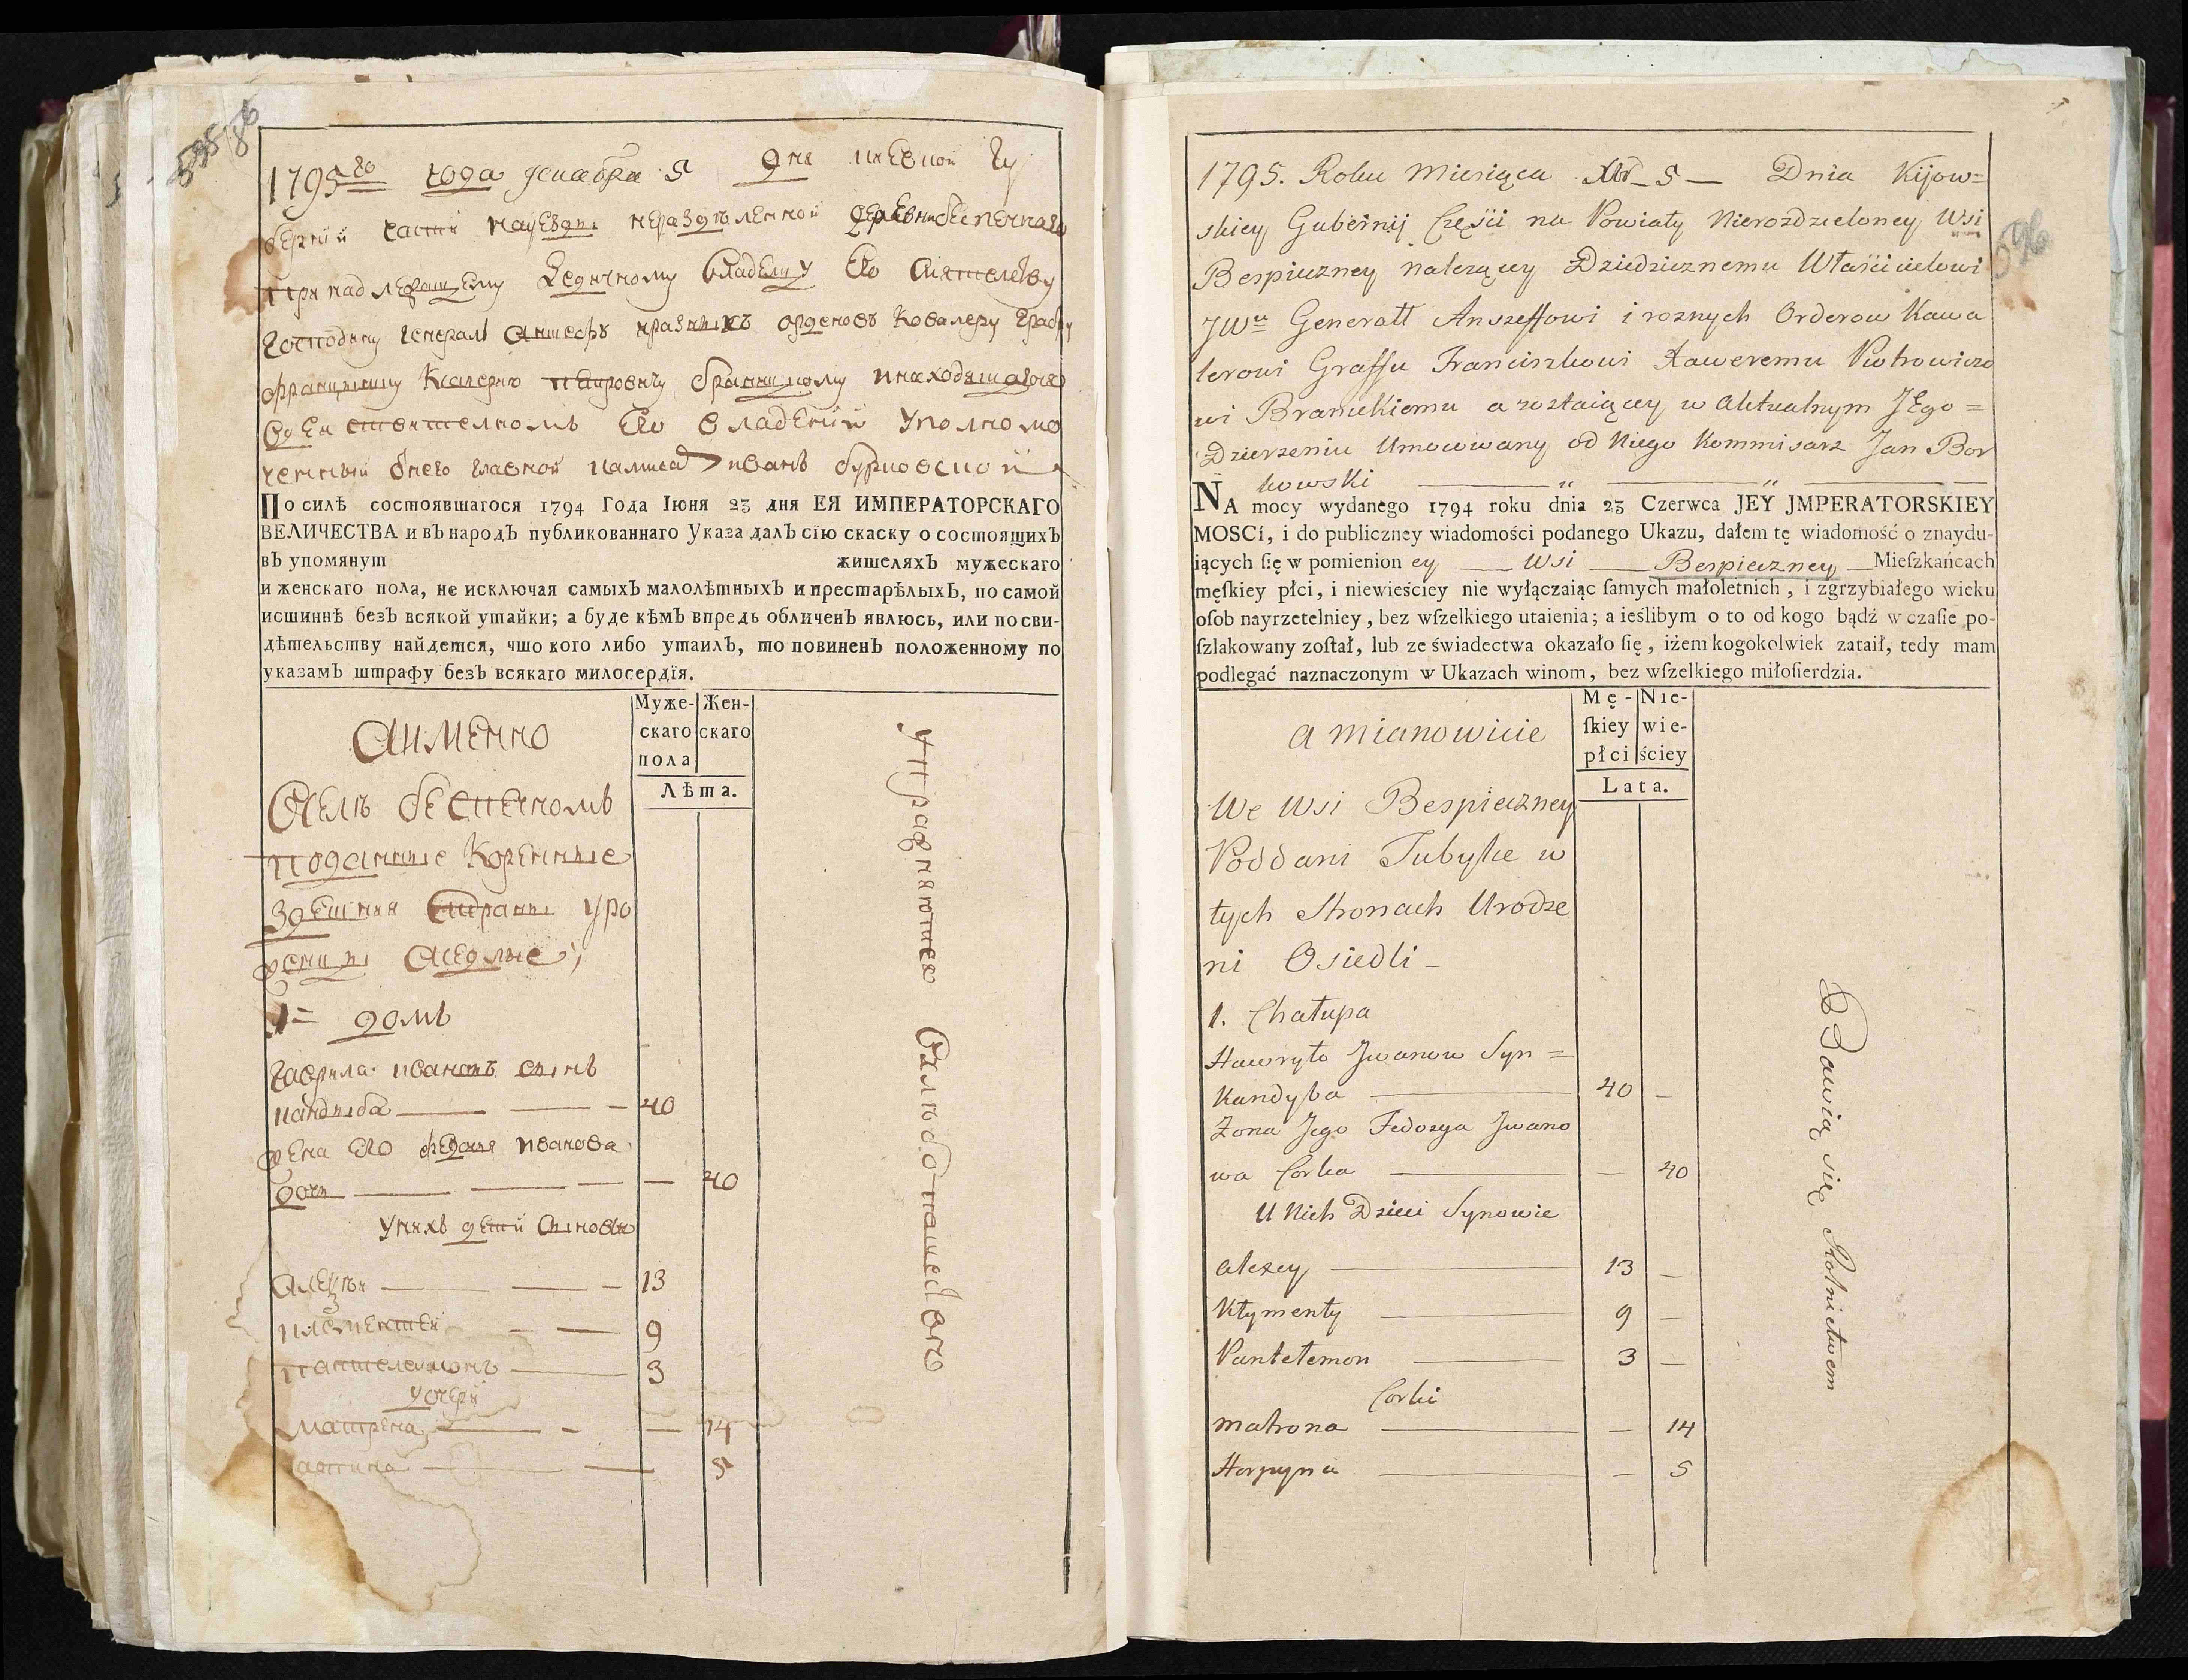 595/86
1795го года декабря 5 дня киевской гу
бернии части науезды неразделенной деревни беспечная
принадлежащему Ведичному владелцу Его Сиятелству
Господину генералъ Аншефу и разныхъ орденовъ Ковалеру Графу
францишку Ксаверию петровичу браницкому инаходящагося
вдействителномъ Его владении Уполномо
ченный
По силѣ состоявшагося 1794 Года Іюня 23 дня ЕЯ ИМПЕРАТОРСКАГО
ВЕЛИЧЕСТВА и въ народъ публикованнаго Указа далъ сію скаску о состоящихъ
въ упомянут жителяхъ мужескаго
и женскаго пола, не исключая самыхъ малолѣтныхъ и престарѣлыхъ, по самой
истиннѣ безъ всякой утайки; а буде кѣмъ впредь обличенъ явлюсь, или по сви-
дѣтельству найдется, что кого либо утаилъ, то повиненъ положенному по
указамъ штрафу безъ всякаго милосердїя.
Муже- Жен-
скаго скаго
пола
Лѣта.
Аименно
Селѣ беспечномъ
поданные Коренные
здешния страны уро
женцы Аседлые;
1= домъ
гаврила ивановъ сынъ
кандыба 40
жена Его федося иванова
дочь 40
Унихъ детей Сыновья
Алеѯѣй 13
климентей 9
пантелемонъ 3
дочери
матрена 14
5
упражняются Хлѣбопашествомъ
596
1795. Roku Miesiąca Xbr 5 Dnia Kijow=
skiey Gubernij Części na Powiaty Nierozdzieloney Wsi
Bespieczney należący Dziedzicznemu Właścicielowi
JWu Generałł Anszeffowi i roznych Orderow Kawa
lerowi Graffu Franciszkowi Xaweremu Piotrowiczo
wi Branickiemu a zostaiącey w Aktualnym JEgo=
Dzierzeniu Umocowany od Niego Kommisarz Jan Bor
kowski
NA mocy wydanego 1794 roku dnia 23 Czerwca JEY JMPERATORSKIEY
MOSCí, i do publiczney wiadomości podanego Ukazu, dałem tę wiadomość o znaydu-
iących ſię w pomienion ey Wsi Bespieczney Mieſzkańcach
męſkiey płci, i niewieściey nie wyłączaiąc ſamych małoletnich, i zgrzybiałego wieku
oſob nayrzetelniey, bez wſzelkiego utaienia; a ieślibym o to od kogo bądź w czaſie po-
ſzlakowany zoſtał, lub ze świadectwa okazało ſię, iżem kogokolwiek zataił, tedy mam
podlegać naznaczonym w Ukazach winom, bez wſzelkiego miłoſierdzia.
Mę- Nie-
ſkiey wie-
płci ściey
Lata.
a mianowicie
We Wsi Bespieczney
Poddani Tubylce w
tych Stronach Urodze
ni Osiedli
1. Chałupa
Hawryło Jwanow Syn =
Kandyba 40
Zona Jego Fedosya Jwano
wa Corka 40
U Nich Dzieci Synowie
Alexey 13
Kłymenty 9
Pantełemon 3
Corki
Matrona 14
Horpyna 5
Bawią się Rolnictwem